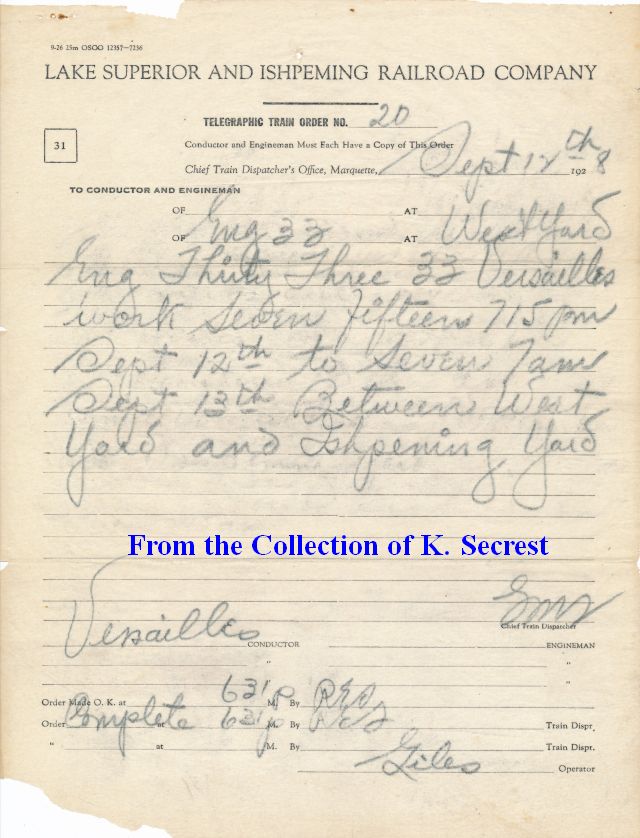 9-26 25m OSCO 12357—7236
LAKE SUPERIOR AND ISHPEMING RAILROAD COMPANY
TELEGRAPHIC TRAIN ORDER NO. 20
31
Conductor and Engineman Must Each Have a Copy of This Order
Chief Train Dispatcher's Office, Marquette, Sept 12th 1928
TO CONDUCTOR AND ENGINEMAN
OF AT
OF Eng 33 AT West Yard
Eng Thirty Three 33 Versailles
work Seven fifteen 715 pm
Sept 12th to Seven 7am
Sept 13th Between West
Yard and Ishpening Yard
From the Collection of K. Secrest
Chief Train Dispatcher
Versailles CONDUCTOR ENGINEMAN
" "
" "
Order Made O. K. at 631 p M. By
Order Complete at 631 p M. By Train Dispr.
" at M. By Train Dispr.
Giles Operator